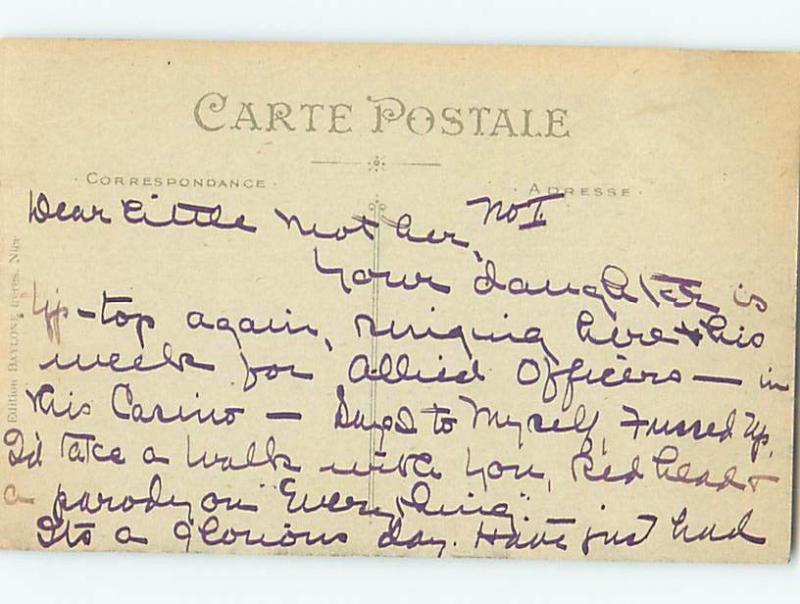 CARTE POSTALE
CORRESPONDANCE
ADRESSE
Edition BAYLONE frères, Nice
Dear Little Mother, No I
Your daughter is
tip-top again, singing here this
week for Allied Officers — in
this Casino — to Myself, Fussed Up,
I'd take a walk with you, Red head &
a parody on "Everything"
Its a glorious day. Have just had